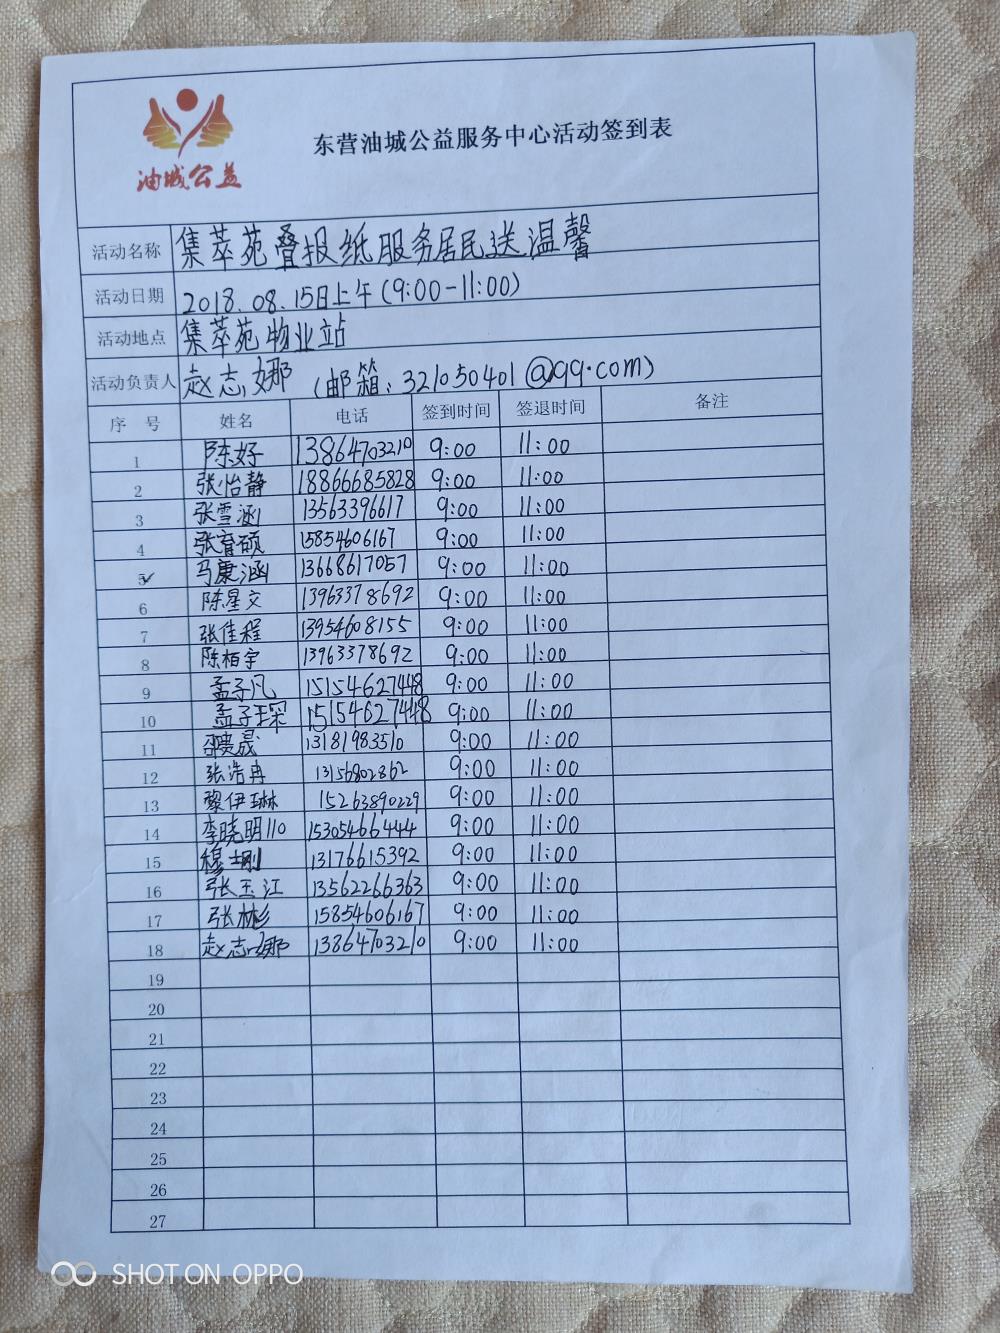 油城公益
东营油城公益服务中心活动签到表
活动名称 集萃苑叠报纸服务居民送温馨
活动日期 2018.08.15日上午(9:00-11:00)
活动地点 集萃苑物业站
活动负责人 赵志娜 (邮箱:321050401@qq.com)
序号 姓名 电话 签到时间 签退时间 备注
1 陈好 13864703210 9:00 11:00
2 张怡静 18866685828 9:00 11:00
3 张雪涵 13563396617 9:00 11:00
4 张育硕 15854606167 9:00 11:00
5 马康涵 13668617057 9:00 11:00
6 陈星文 13963378692 9:00 11:00
7 张佳程 13954608155 9:00 11:00
8 陈柏宇 13963378692 9:00 11:00
9 孟子凡 15154627448 9:00 11:00
10 孟子琛 15154627448 9:00 11:00
11 13181983510 9:00 11:00
12 张浩冉 13156802862 9:00 11:00
13 黎伊琳 15263890229 9:00 11:00
14 李晓明110 15305466444 9:00 11:00
15 穆士刚 13176615392 9:00 11:00
16 张玉江 13562266363 9:00 11:00
17 张彬彬 15854606167 9:00 11:00
18 赵志娜 13864703210 9:00 11:00
19
20
21
22
23
24
25
26
27
SHOT ON OPPO